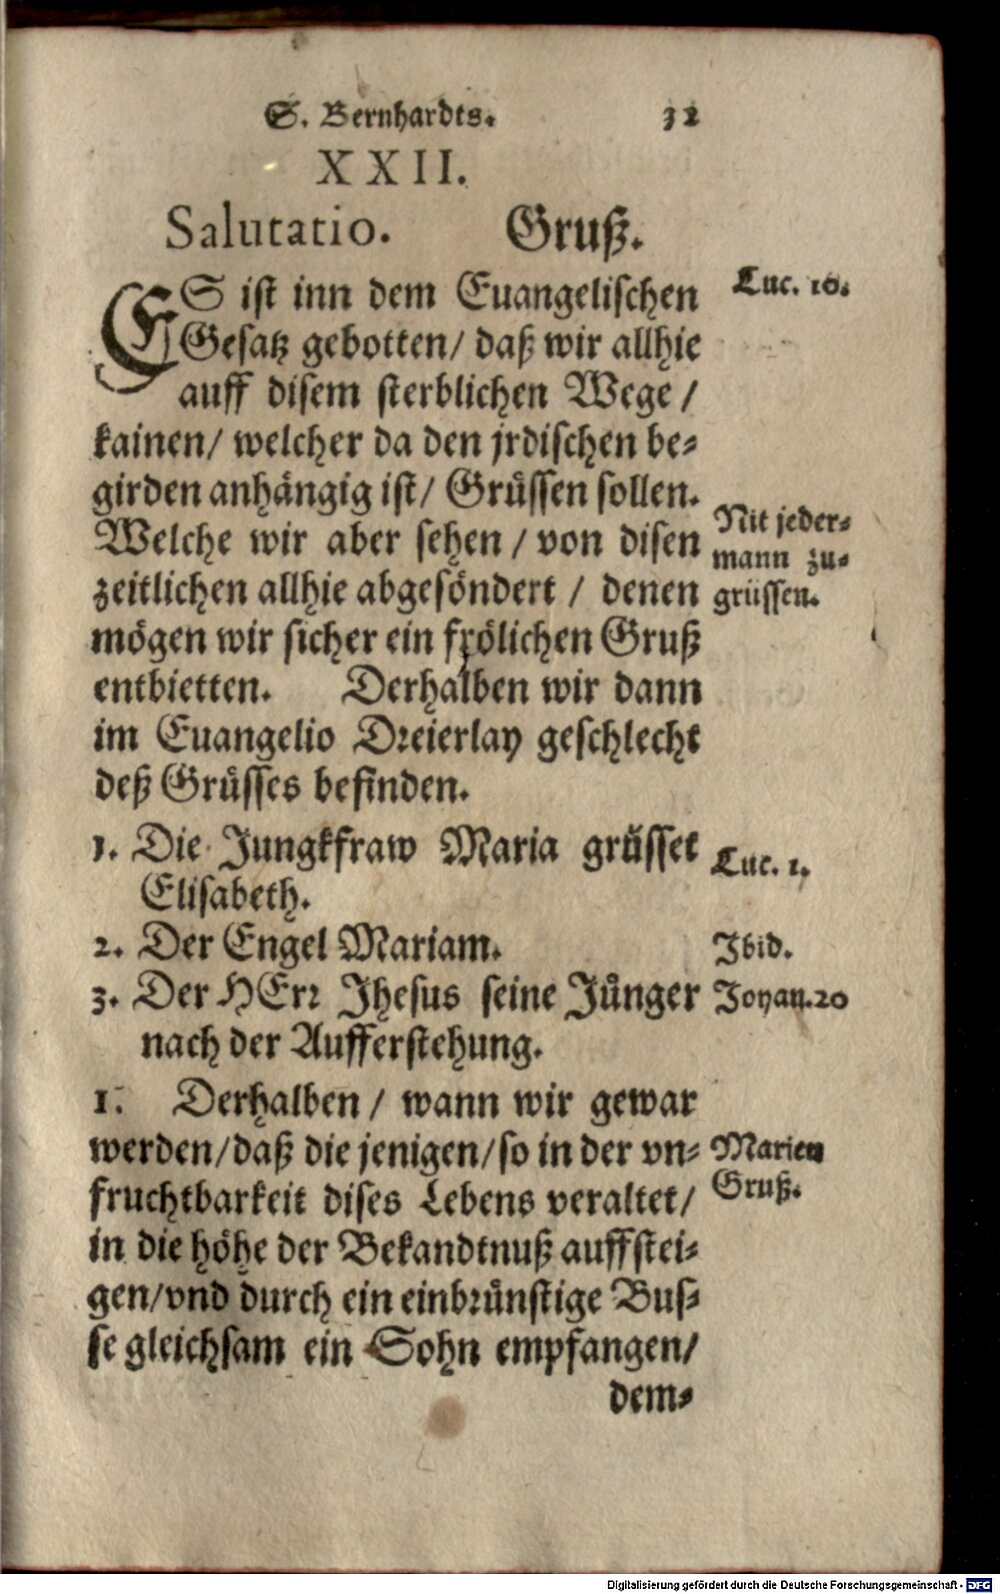 S. Bernhardts. 32
XXII.
Salutatio. Gruß.
ES ist inn dem Euangelischen
Luc. 10.
Gesatz gebotten/ daß wir allhie
auff disem sterblichen Wege /
kainen/ welcher da den jrdischen be-
girden anhängig ist/ Grüssen sollen.
Welche wir aber sehen / von disen
zeitlichen allhie abgesöndert / denen
mögen wir sicher ein frölichen Gruß
Nit jeder-
mann zu-
grüssen.
entbietten. Derhalben wir dann
im Euangelio Dreierlay geschlecht
deß Grüsses befinden.
1. Die Jungkfraw Maria grüsset
Luc. 1.
Elisabeth.
2. Der Engel Mariam.
Jbid.
3. Der HErr Jhesus seine Jünger
Johan. 20
nach der Aufferstehung.
1. Derhalben / wann wir gewar
werden/daß die jenigen/so in der vn-
Marien
Gruß.
fruchtbarkeit dises Lebens veraltet/
in die höhe der Bekandtnuß auffstei-
gen/vnd durch ein einbrünstige Bus-
se gleichsam ein Sohn empfangen/
dem-
Digitalisierung gefördert durch die Deutsche Forschungsgemeinschaft - DFG